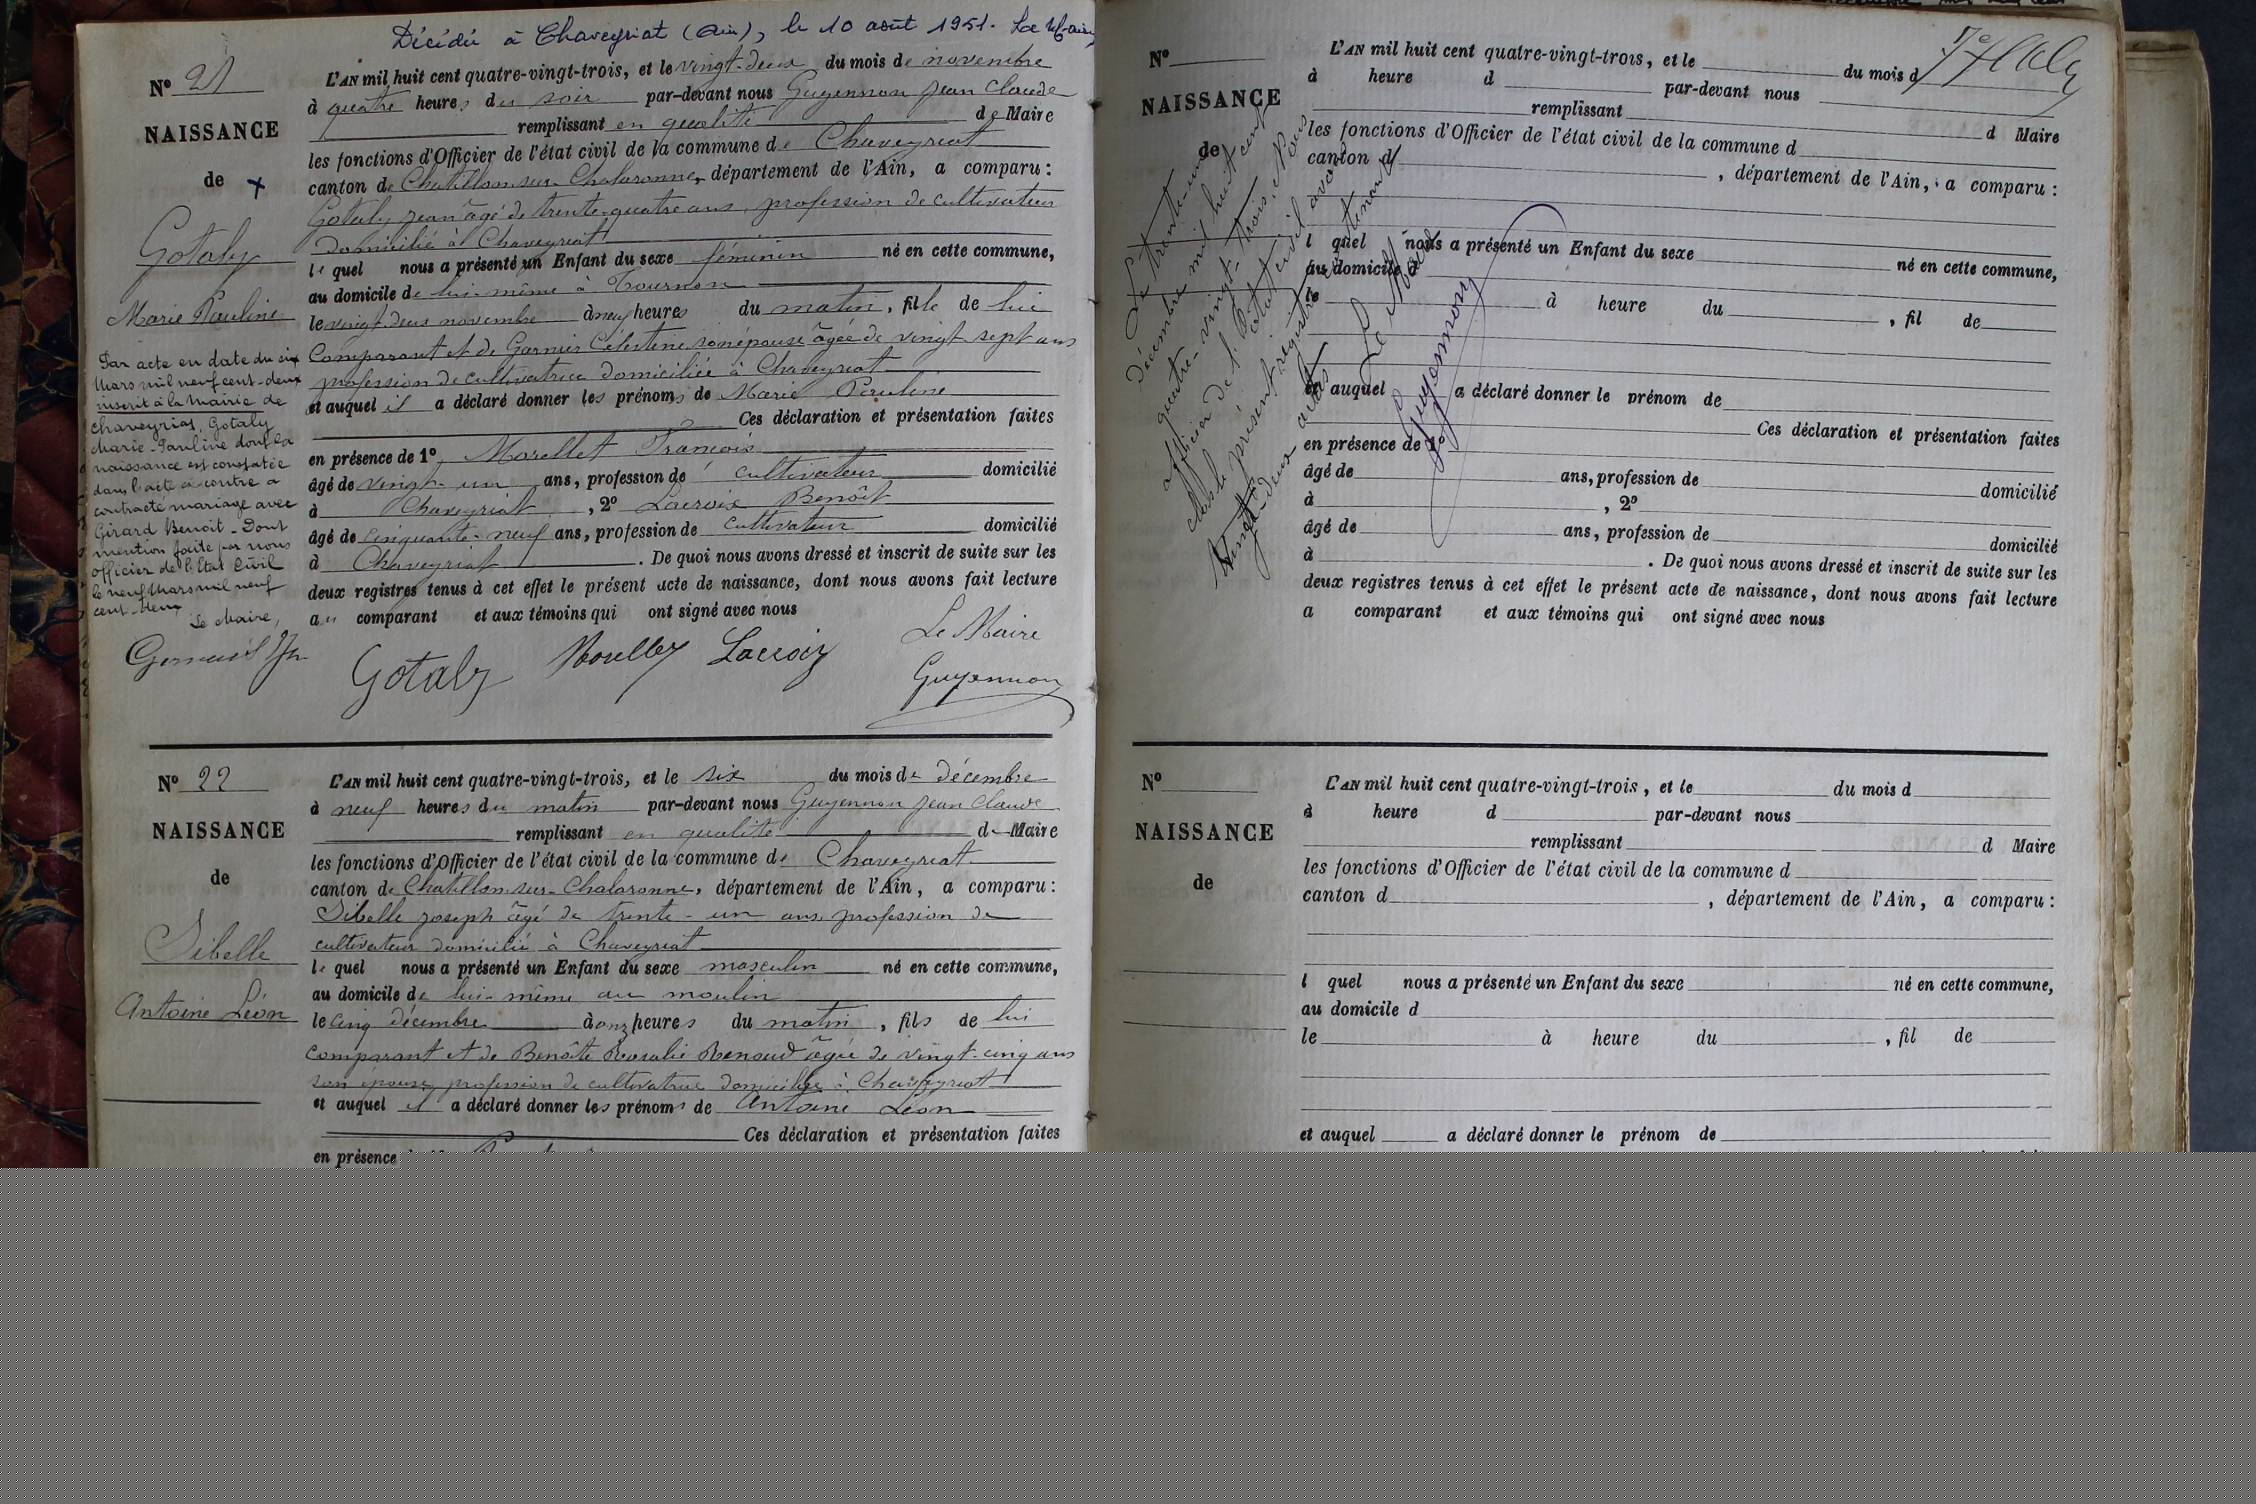 Décédée à Chaveyriat (Ain), le 10 août 1951. Le Maire,
N° 21
NAISSANCE
de
Gotaly
Marie Pauline
Par acte en date du six
Mars mil neuf cent-deux
inscrit à la Mairie de
Chaveyriat, Gotaly
Marie-Pauline dont la
naissance est constatée
dans l'acte ci-contre a
contracté mariage avec
Girard Benoit - Dont
mention faite par nous
officier de l'Etat Civil
le neuf Mars mil neuf
cent-deux
Le Maire,
L'AN mil huit cent quatre-vingt-trois, et le vingt-deux du mois de novembre
à quatre heures du soir par-devant nous Guyennon Jean Claude
remplissant en qualité de Maire
les fonctions d'Officier de l'état civil de la commune de Chaveyriat
canton de Chatillon-sur-Chalaronne, département de l'Ain, a comparu :
Gotaly Jean âgé de trente-quatre ans, profession de cultivateur
domicilié à Chaveyriat
le quel nous a présenté un Enfant du sexe féminin né en cette commune,
au domicile de lui-même à Tournon
le vingt-deux novembre à neuf heures du matin, fille de lui
Comparant et de Garnier Célestine son épouse âgée de vingt sept ans
profession de cultivatrice domiciliée à Chaveyriat
et auquel il a déclaré donner les prénoms de Marie Pauline
Ces déclaration et présentation faites
en présence de 1° Morellet François
âgé de vingt-un ans, profession de cultivateur domicilié
à Chaveyriat, 2° Lacroix Benoît
âgé de cinquante-neuf ans, profession de cultivateur domicilié
à Chaveyriat. De quoi nous avons dressé et inscrit de suite sur les
deux registres tenus à cet effet le présent acte de naissance, dont nous avons fait lecture
au comparant et aux témoins qui ont signé avec nous
Le Maire
Gotaly Lacroix
Guyennon
N° 22
NAISSANCE
de
Sibelle
Antoine Léon
L'AN mil huit cent quatre-vingt-trois, et le six du mois de décembre
à neuf heures du matin par-devant nous Guyennon Jean Claude
remplissant en qualité de Maire
les fonctions d'Officier de l'état civil de la commune de Chaveyriat
canton de Chatillon-sur-Chalaronne, département de l'Ain, a comparu :
Sibelle Joseph âgé de trente-un ans profession de
cultivateur domicilié à Chaveyriat
le quel nous a présenté un Enfant du sexe masculin né en cette commune,
au domicile de lui-même au moulin
le cinq décembre à onz heures du matin, fils de lui
comparant et de Benoîte Rosalie Renoud âgée de vingt-cinq ans
son épouse profession de cultivatrice domiciliée à Chaveyriat
et auquel il a déclaré donner les prénoms de Antoine Léon
Ces déclaration et présentation faites
en présence
N°
NAISSANCE
de
L'AN mil huit cent quatre-vingt-trois, et le du mois d
à heure d par-devant nous
remplissant d Maire
les fonctions d'Officier de l'état civil de la commune d
canton d , département de l'Ain, a comparu :
l quel nous a présenté un Enfant du sexe né en cette commune,
au domicile d
le à heure du , fil de
et auquel a déclaré donner le prénom de
Ces déclaration et présentation faites
en présence de 1°
âgé de ans, profession de domicilié
à , 2°
âgé de ans, profession de domicilié
à . De quoi nous avons dressé et inscrit de suite sur les
deux registres tenus à cet effet le présent acte de naissance, dont nous avons fait lecture
a comparant et aux témoins qui ont signé avec nous
Le trente-un
décembre mil huit cent
quatre-vingt-trois, Nous
officier de l'état civil avons
clos le présent registre contenant
vingt-deux actes
Le Maire
Guyennon
N°
NAISSANCE
de
L'AN mil huit cent quatre-vingt-trois, et le du mois d
à heure d par-devant nous
remplissant d Maire
les fonctions d'Officier de l'état civil de la commune d
canton d , département de l'Ain, a comparu :
l quel nous a présenté un Enfant du sexe né en cette commune,
au domicile d
le à heure du , fil de
et auquel a déclaré donner le prénom de